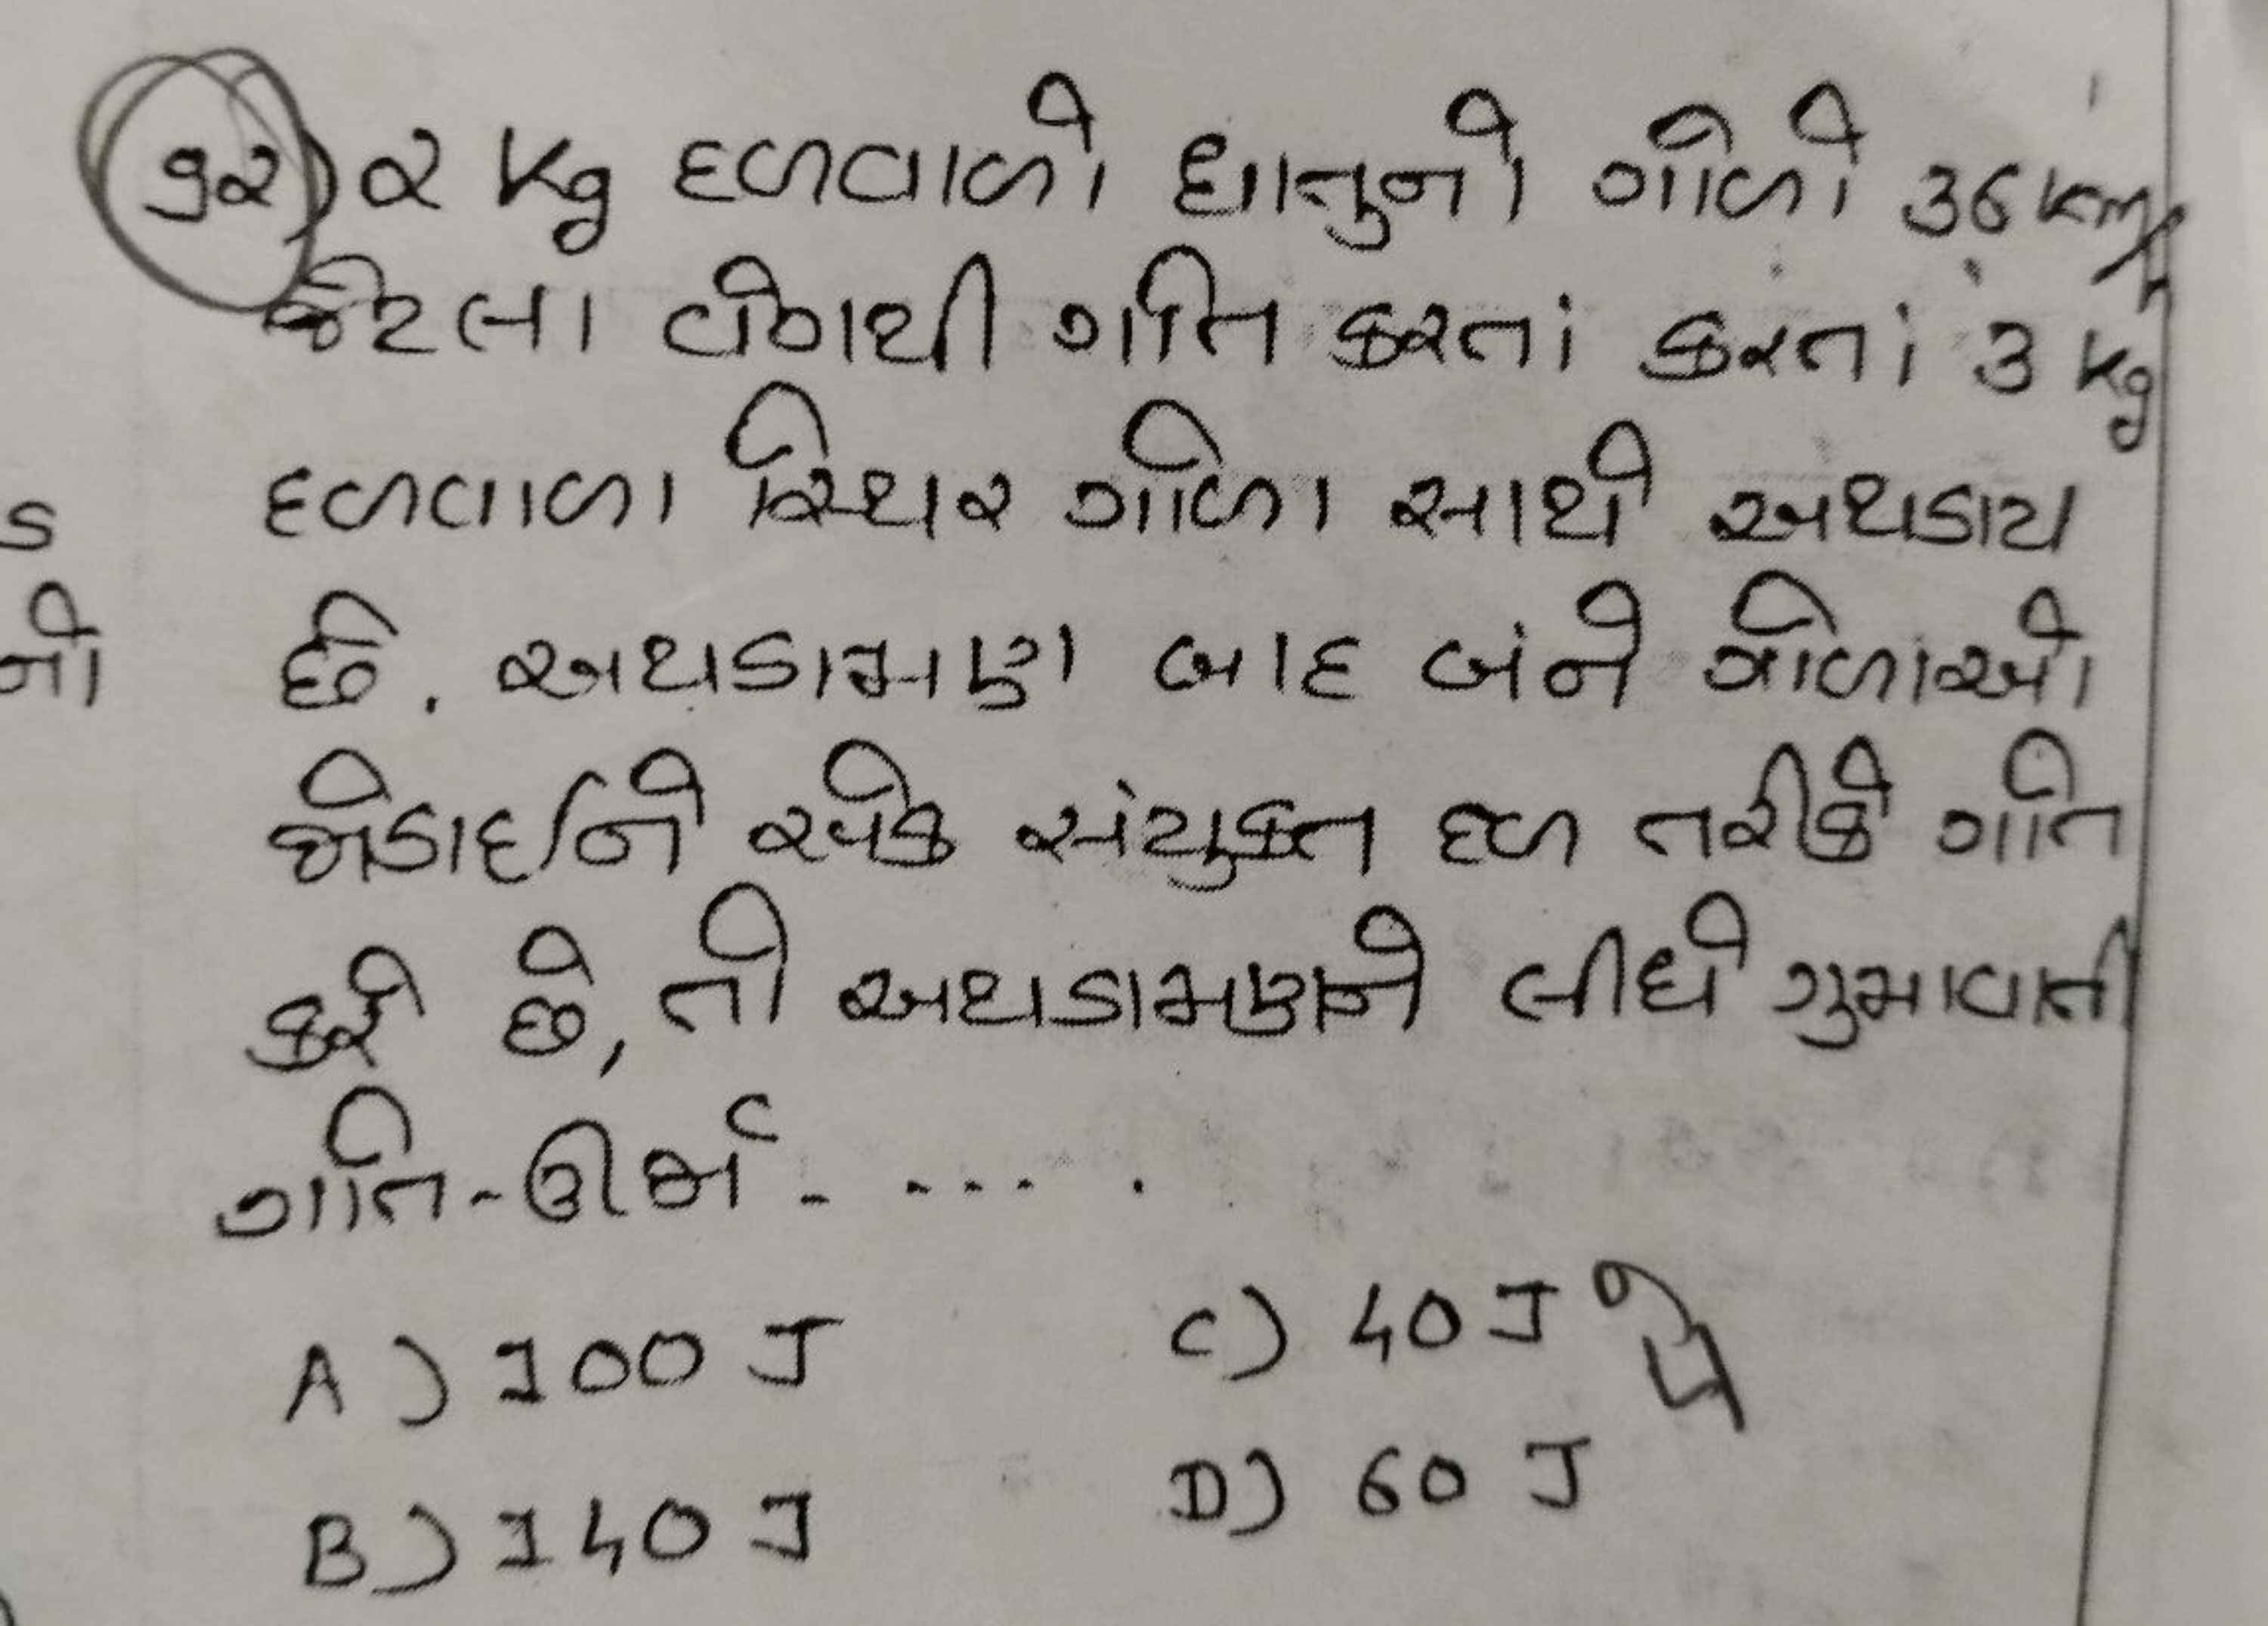 ૭૨) ૨ Kg દળવાળો ધાતુનો ગોળો 36 km/h
જેટલા વેગથી ગતિ કરતાં કરતાં 3 kg
દળવાળા સ્થિર ગોળા સાથે અથડાય
છે. અથડામણ બાદ બંને ગોળાઓ
જોડાઈને એક સંયુક્ત દળ તરીકે ગતિ
કરે છે, તો અથડામણને લીધે ગુમાવાતી
ગતિ-ઊર્જા - .... .
A) 100 J
B) 140 J
C) 40 J
D) 60 J
ડ
નો